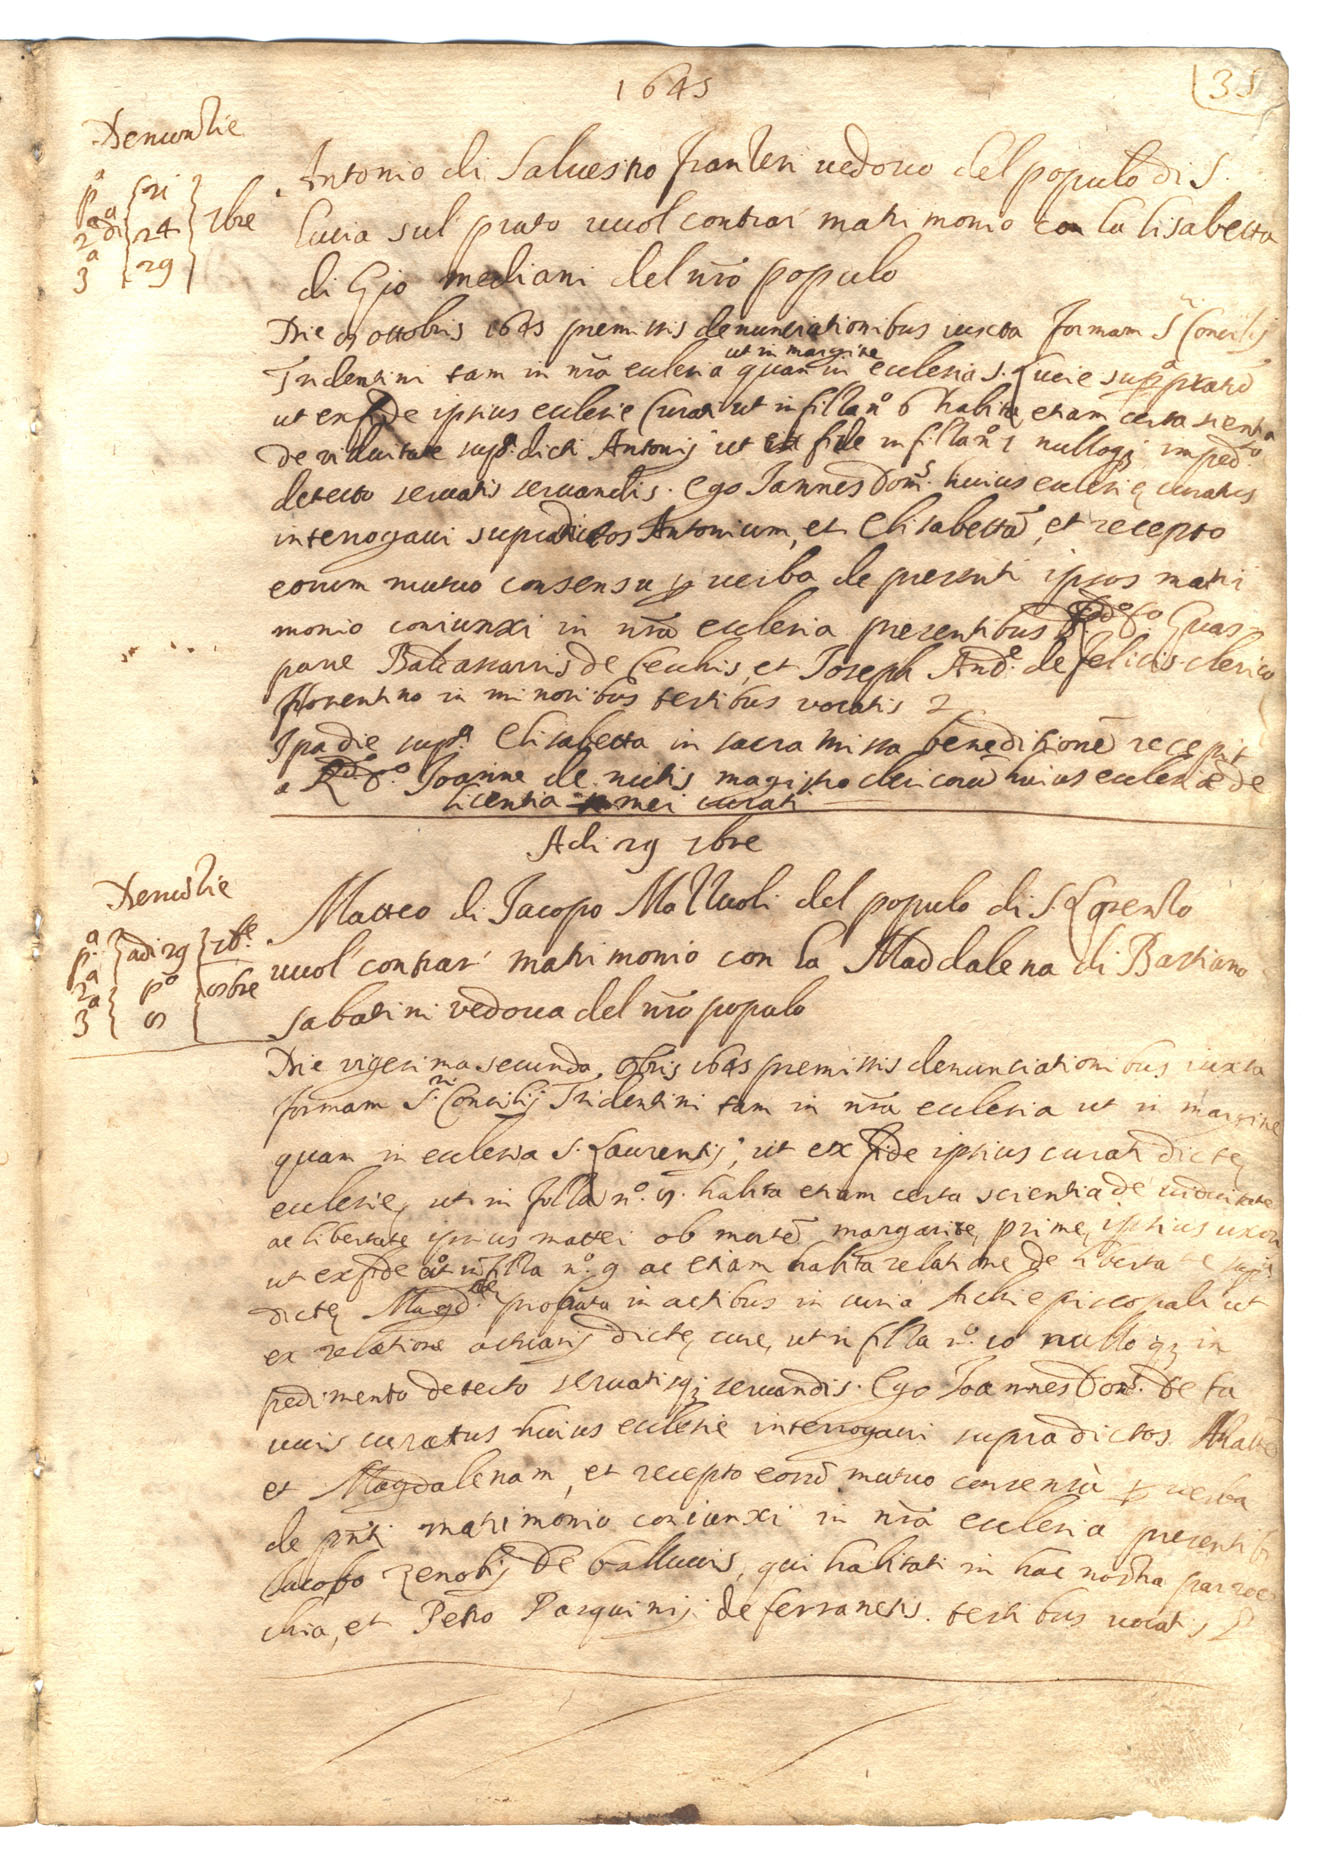 1645
35
Denuntie
pa 21
2a di 24 7bre
3a 29
Antonio di Salvestro franteri vedovo del populo di S.
lucia sul prato vuol contrar matrimonio con la lisabetta
di Gio mediani del nrõ populo
Die 9 ottobris 1645 premissis denunciationibus iuxta formam S.ri Concilij
ut in margine
Tridentini tam in nrã ecclesia quam in ecclesia S. Lucie supra pratũ
ut ex fide ipsius ecclesie Curati ut in filla no 6 habita etiam certa scientia
de viduitate supo.dicti Antonij ut ex fide in filla no 7 nulloq; imped.to
detecto servatis servandis. Ego Joannes Dom.s huius ecclesię curatus
interrogavi supradictos Antonium, et Elisabettã, et recepto
eorum mutuo consensu p verba de presenti ipsos matri
monio coniunxi in nrã ecclesia presentibus Rdo Do Guas-
parre Baldassarris de Cecchis, et Joseph And.e de felicis clerico
florentino in minoribus testibus vocatis
Ipa die supa. Elisabetta in sacra missa beneditionẽ recepit
a Rdo Do. Joanne de nutis magistro clericorũ huius ecclesiæ de
licentia mei curati
Adi 29 7bre
Denũtie
pa. adi 29 7bre.
2a po 8bre
3a 8
Matteo di Jacopo Mattuoli del populo di S. Lorento
vuol contrar matrimonio con la Maddalena di Bastiano
sabatini vedova del nrõ populo
Die vigesima secunda, 8bris 1645 premissis denunciationibus iuxta
formam S.ri Concilij Tridentini tam in nrã ecclesia ut in margine
quam in ecclesia S. Laurentij, ut ex fide ipsius curati dictę
ecclesie, ut in filla no. 8. habita etiam certa scientia de viduitate
ac libertate ipsius mattei ob mortẽ margarite, prime, ipsius uxoris
ut ex fide ut in filla no. 9 ac etiam habita relatione de libertate supra
dictę Magd.ne probata in actibus in curia Archiepiscopali ut
ex relatione actuarij dictę curie, ut in filla no. 10 nulloq; im
pedimento detecto servatisq; servandis. Ego Joannes Dom.s de fa
uciis curatus huius ecclesie interrogavi supradictos Matteũ
et Magdalenam, et recepto eorũ mutuo consensu p verba
de pnti matrimonio coniunxi in nrã ecclesia presentibus
Jacobo Zenobij de balluciis, qui habitat in hac nostra parroc
chia, et Petro Pasquinij de ferranctis. testibus vocatis